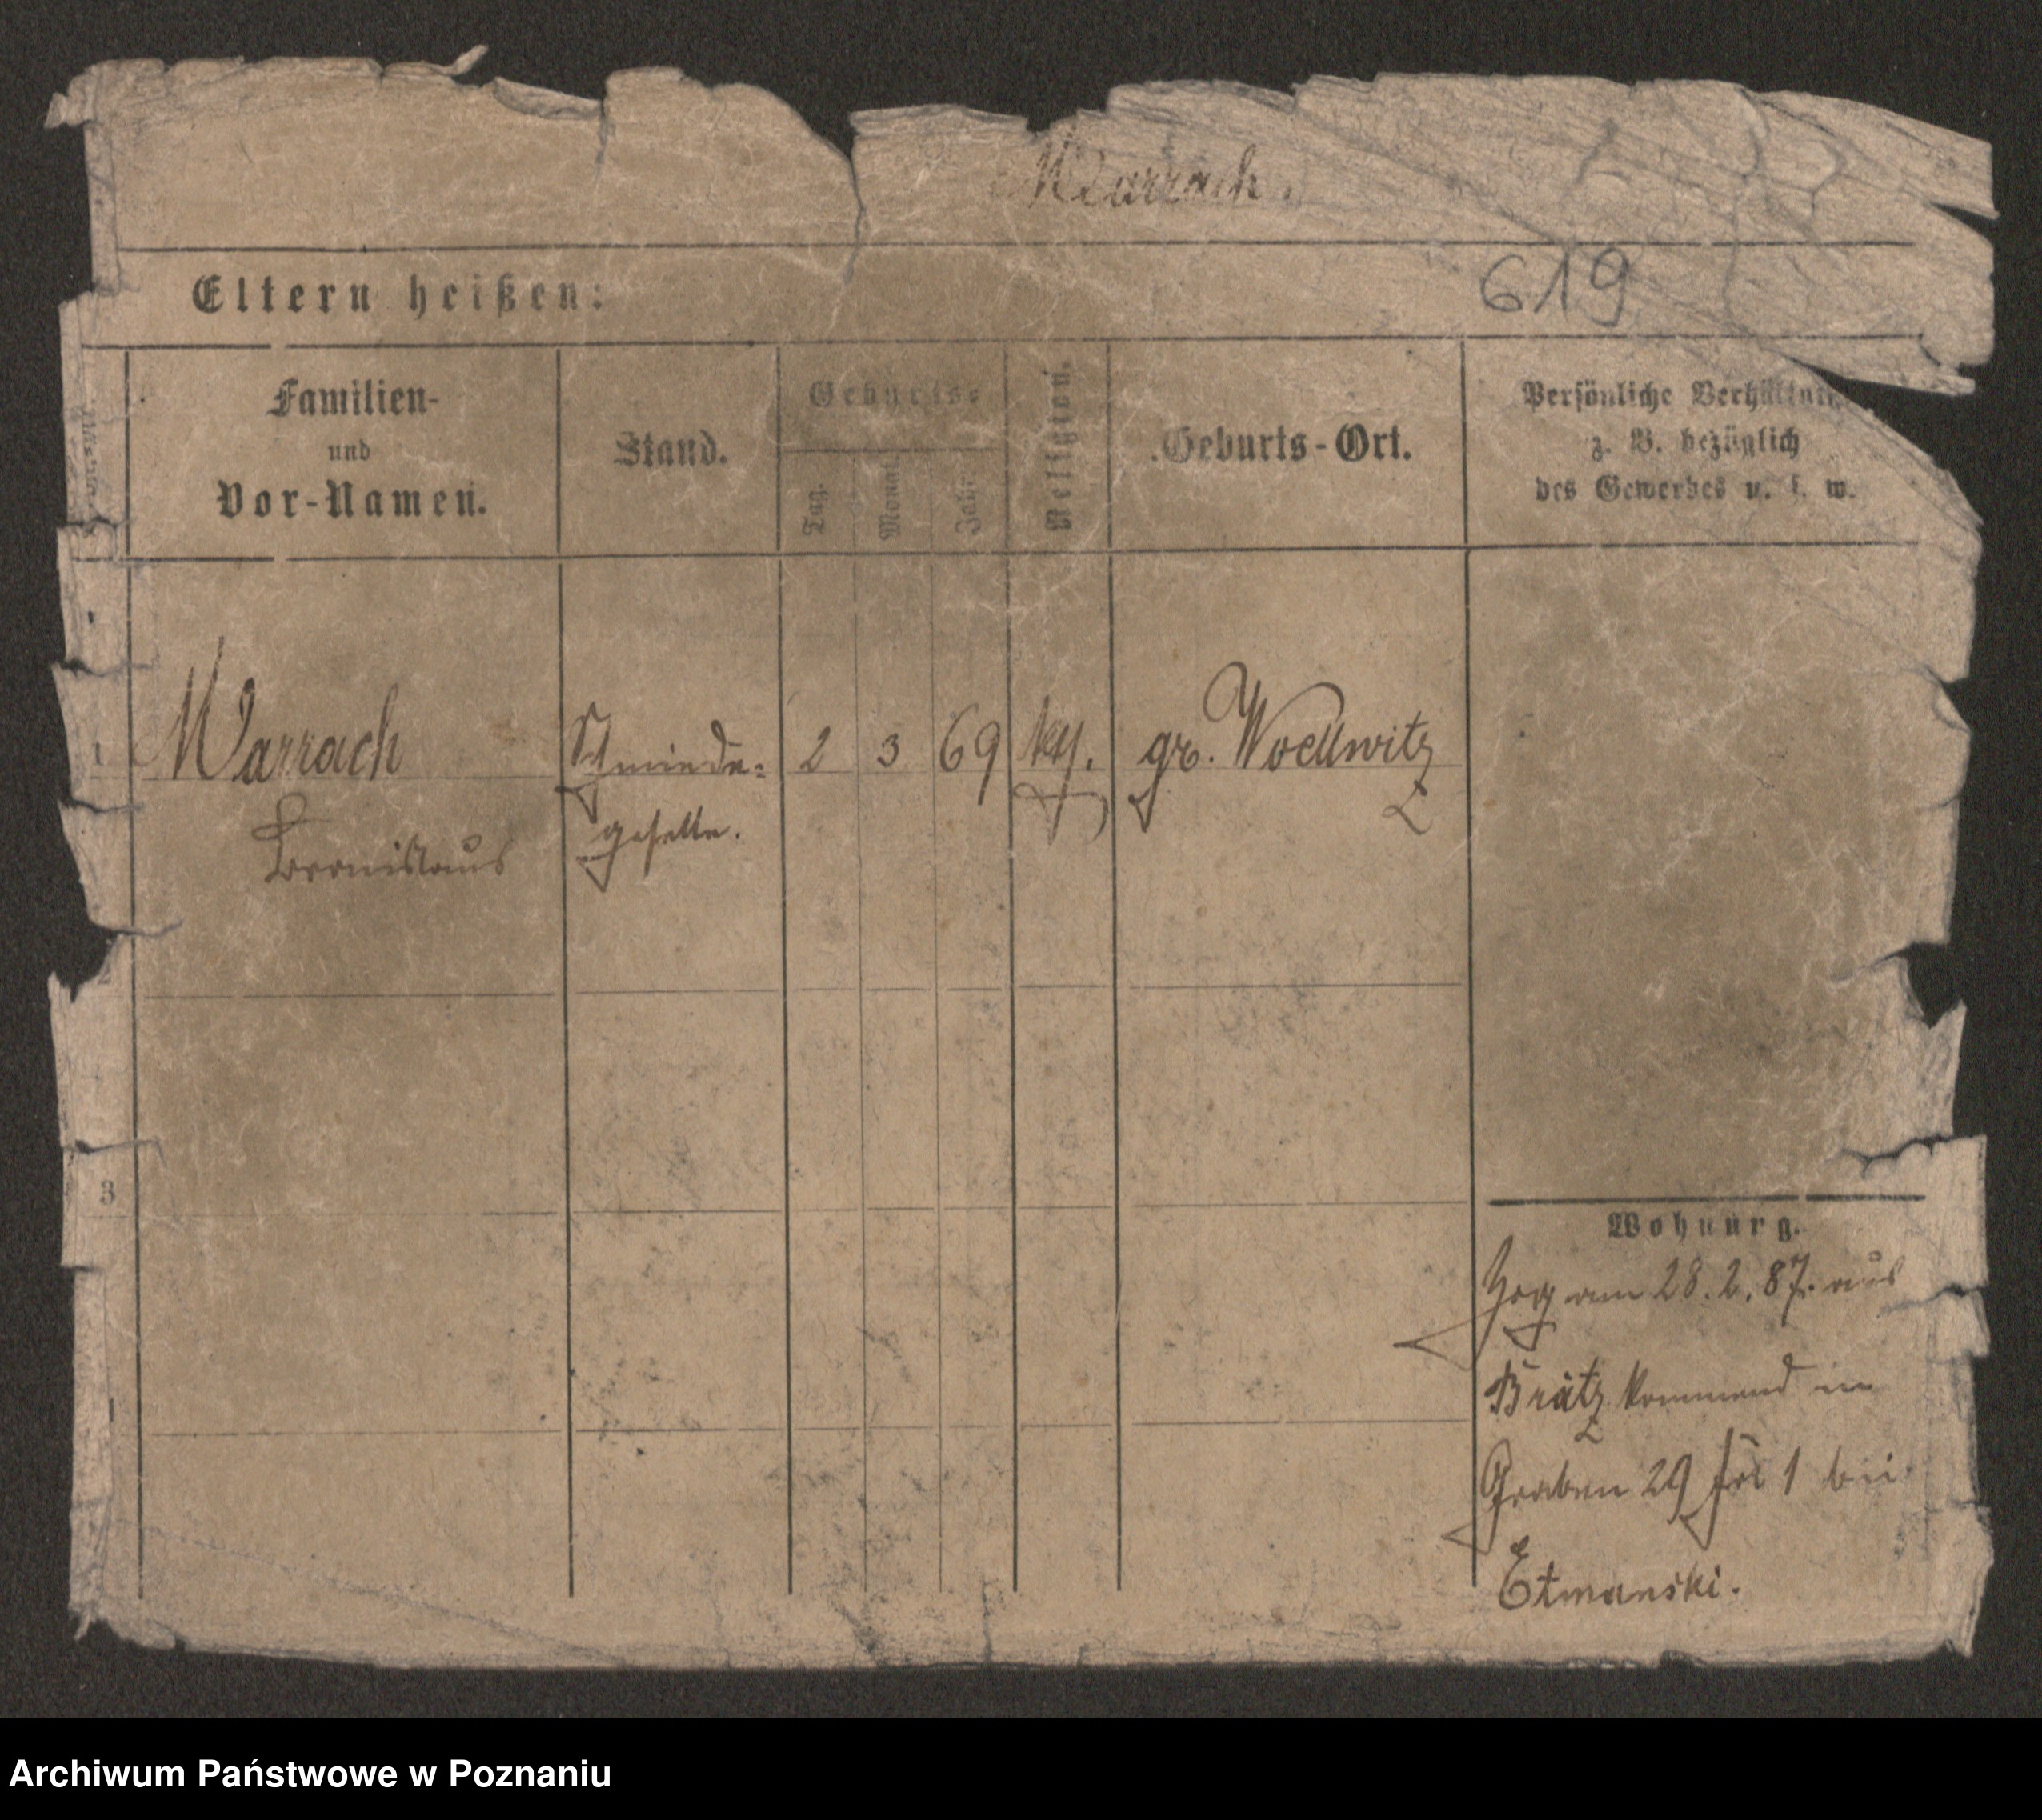 Warrach.
Eltern heißen:
619
Familien-
und
Vor-Namen.
Stand.
Geburts-
Tag.
Monat.
Jahr
Religion.
Geburts-Ort.
Persönliche Verhältnisse
z. B. bezüglich
des Gewerbes u. s. w.
1
Warrach
Schmiede-
2
3
69
kth.
gr. Woellwitz
Bronislaus
geselle.
3
Wohnung.
Zog am 28.2.87. aus
Brätz kommend in
Graben 29 bei
Etmanski.
Archiwum Państwowe w Poznaniu